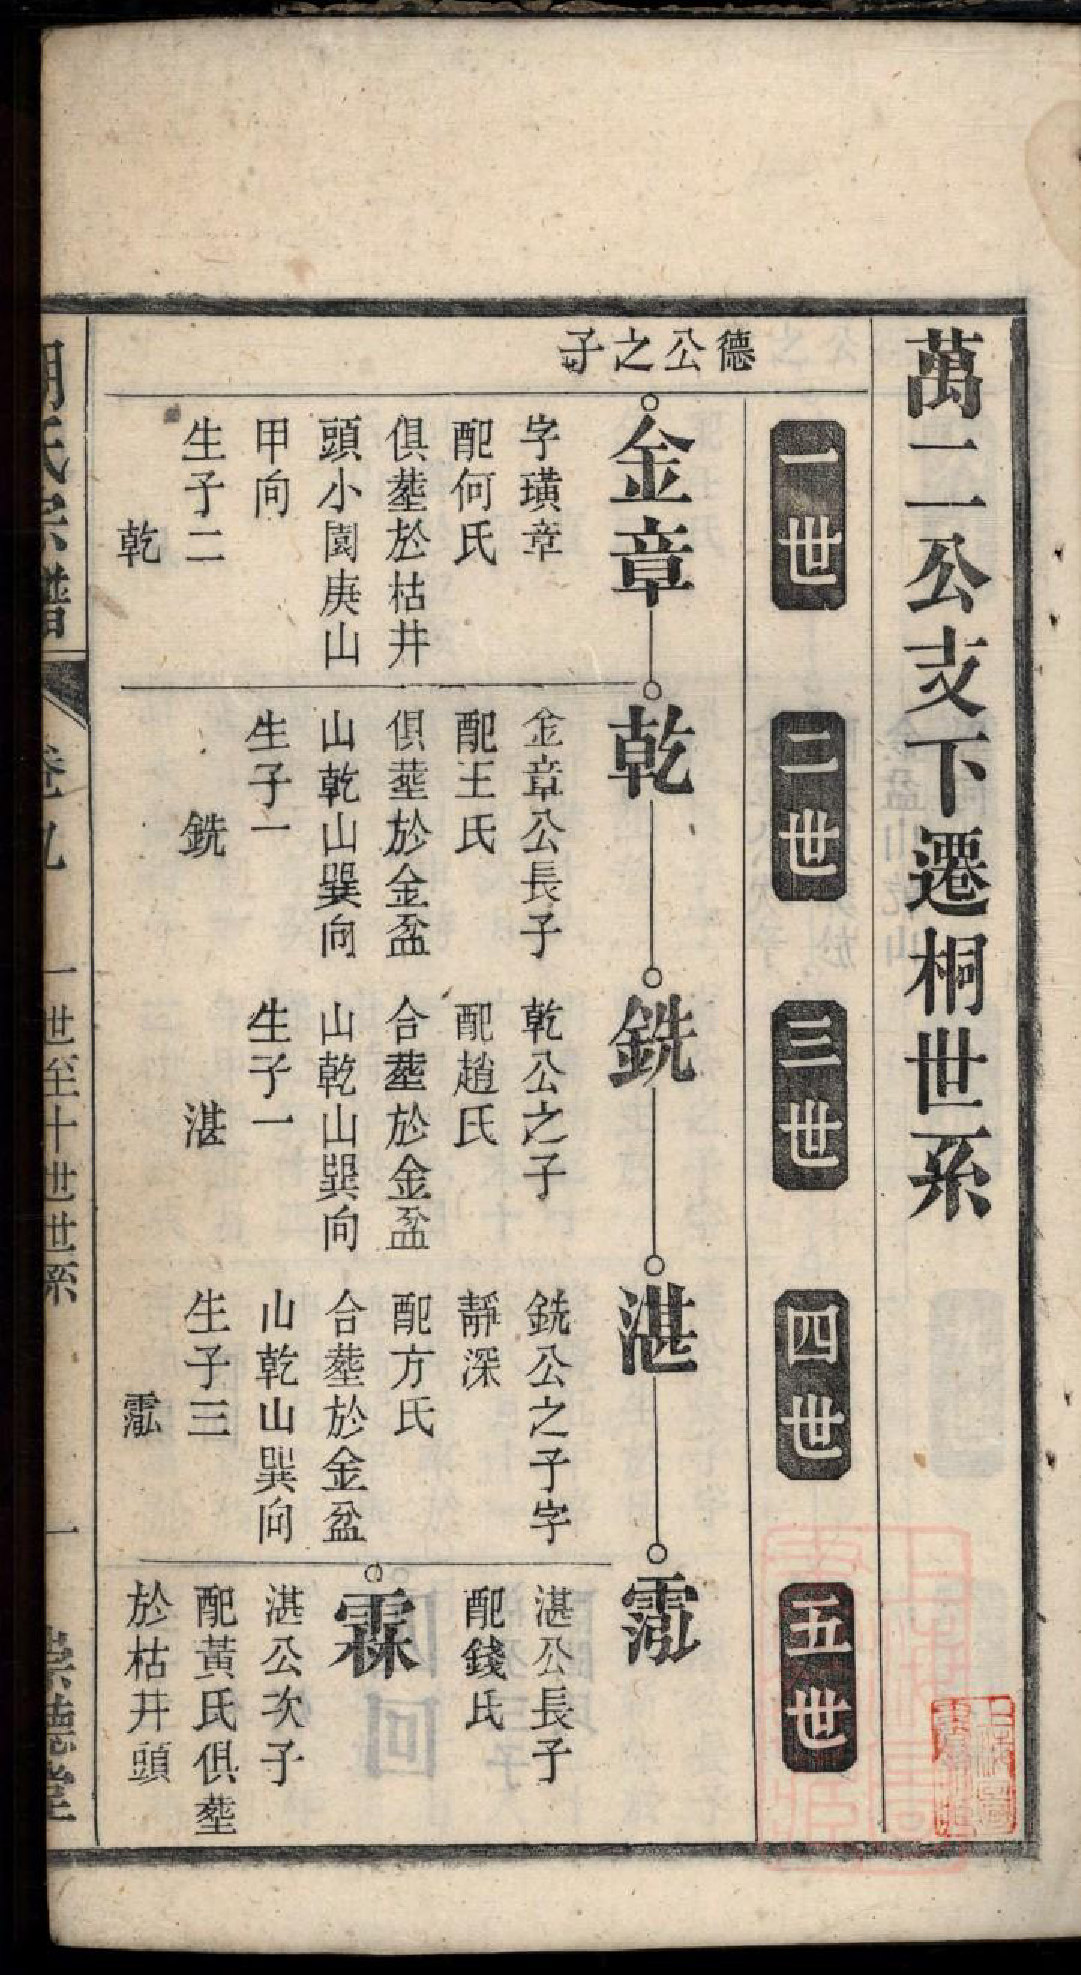 萬二公支下遷桐世系
一世
二世
三世
四世
五世
德公之子
金章
字璜章
配何氏
俱塟於枯井
頭小園庚山
甲向
生子二
乾
乾
金章公長子
配王氏
俱塟於金盆
山乾山巽向
生子一
銑
銑
乾公之子
配趙氏
合塟於金盆
山乾山巽向
生子一
湛
湛
銑公之子字
靜深
配方氏
合塟於金盆
山乾山巽向
生子三
霐
霐
湛公長子
配錢氏
霖
湛公次子
配黃氏俱塟
於枯井頭
氏宗譜
卷九
一世至十世世系
一
崇德堂